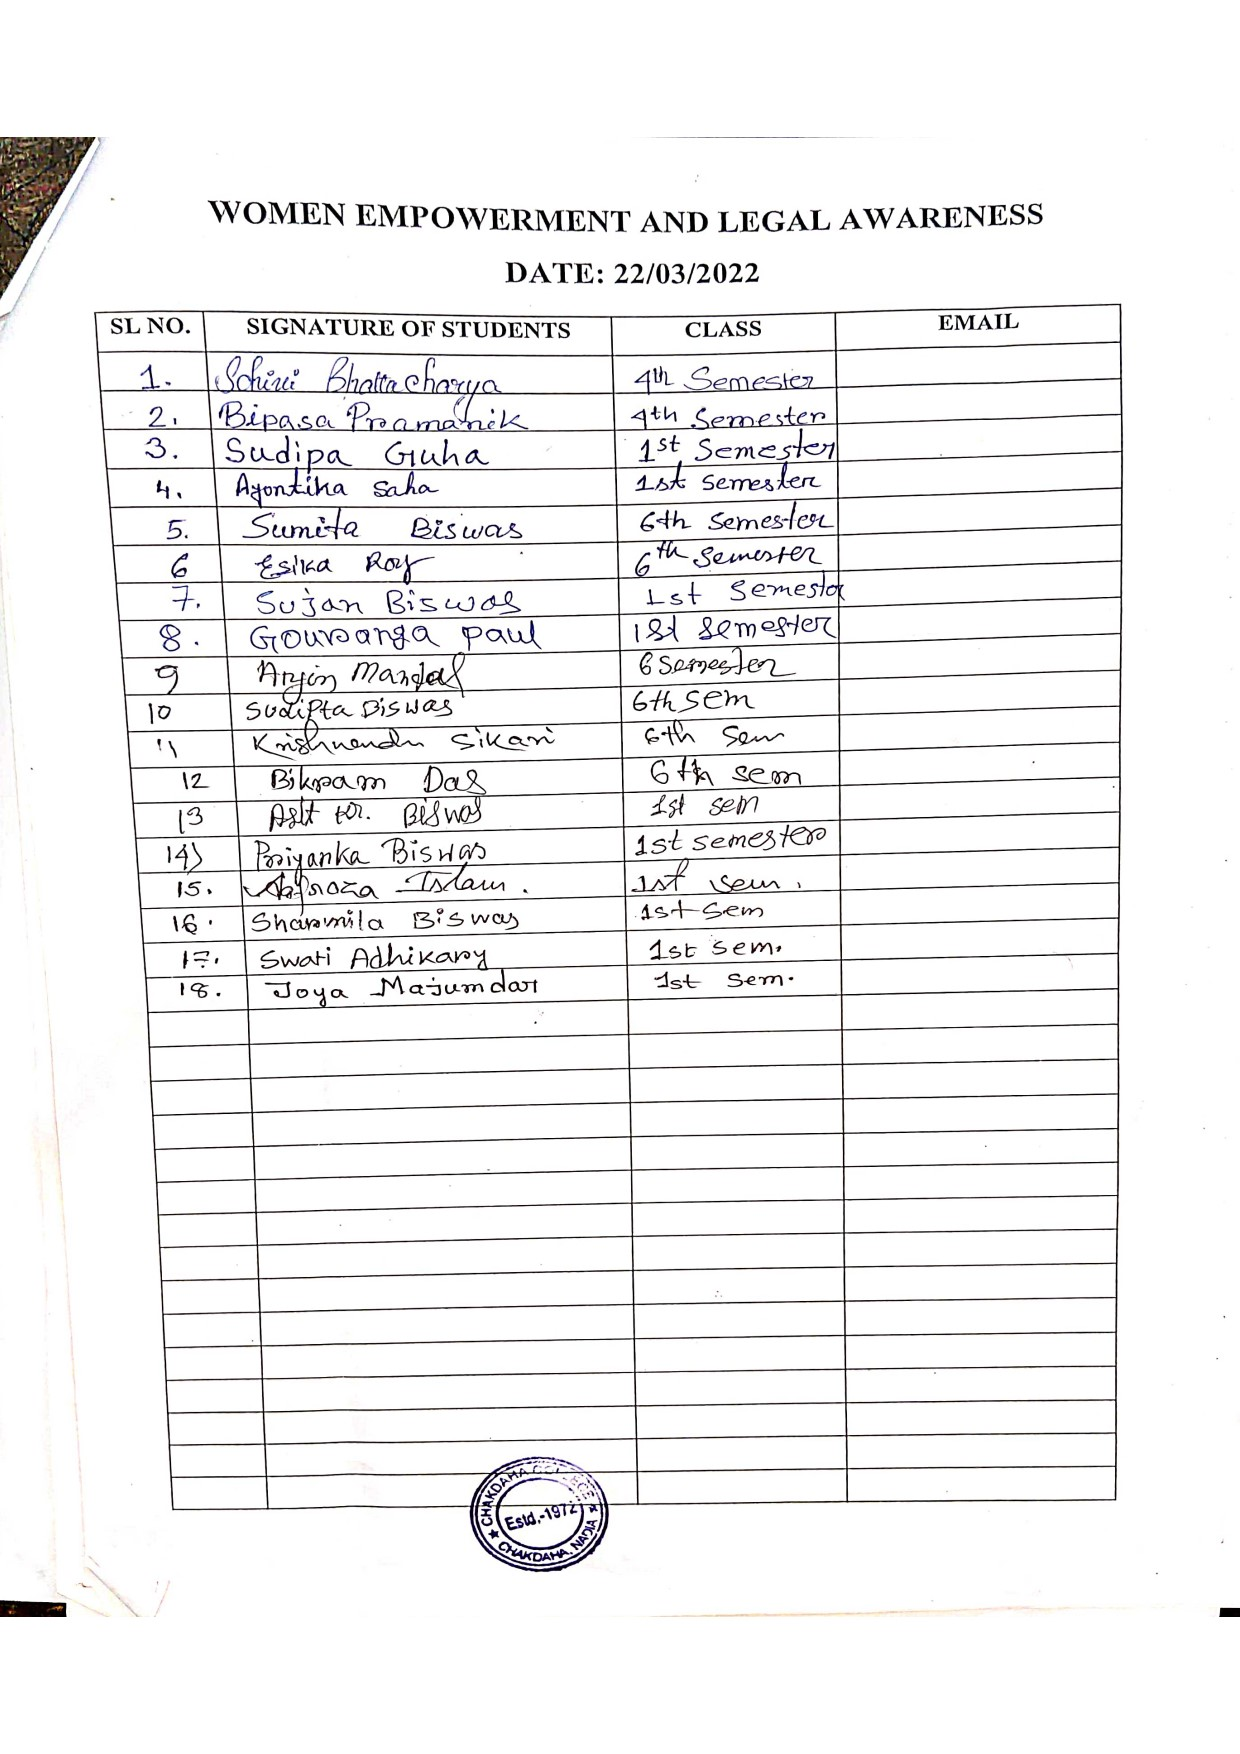 WOMEN EMPOWERMENT AND LEGAL AWARENESS
DATE: 22/03/2022
SL NO. SIGNATURE OF STUDENTS CLASS EMAIL
1. Sohini Bhattacharya 4th Semester
2. Bipasa Pramanik 4th Semester
3. Sudipa Guha 1st Semester
4. Ayontika Saha 1st semester
5. Sumita Biswas 6th Semester
6 Esika Roy 6th Semester
7. Sujan Biswas 1st Semester
8. Gouranga paul 1st semester
9 Arjin Mandal 6 Semester
10 Sudipta Biswas 6th sem
11 Krishnendu Sikari 6th Sem
12 Bikram Das 6th sem
13 Asit kr. Biswas 1st sem
14) Priyanka Biswas 1st semester
15. Afroza Islam. 1st sem.
16. Sharmila Biswas 1st Sem
17. Swati Adhikary 1st sem.
18. Joya Majumdar 1st Sem.
CHAKDAHA COLLEGE
Estd.-1972
★ CHAKDAHA, NADIA ★